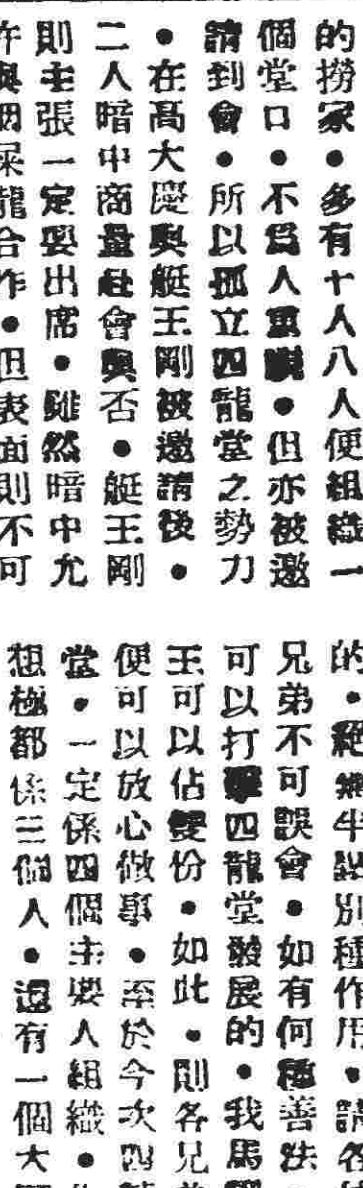 的撈家●多有十人八人便組織一
個堂口●●不為人重視●但亦被邀
請到會●所以孤立四龍堂之勢力
●在高大慶與艇王剛被邀請後●
二人暗中商量赴會與否●艇王剛
則主張一定要出席●雖然暗中允
許與烟屎龍合作●但表面則不可
的●絕無半點別種作用●請各
兄弟不可誤會●如有何種善法
可以打擊四龍堂發展的●我馬
王可以佔雙份●如此●則各兄
便可以放心做事●至於今次四
堂●一定係四個主要人組織●
想極都係三個人●還有一個大